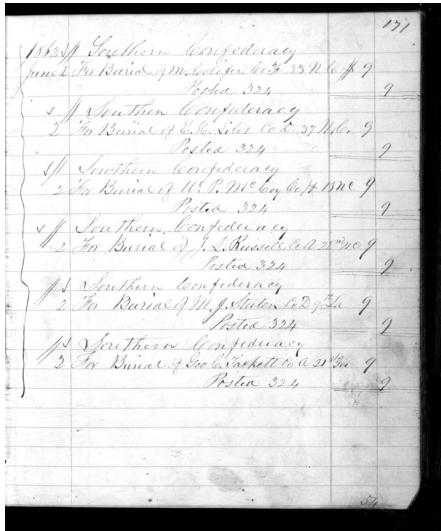 171
1863 Southern Confederacy
June 2 For Burial of M. Colifer Co F 33 N Co 9
Posted 324 9
Southern Confederacy
2 For Burial of E. C. Liles Co D 37 N.C. 9
Posted 324 9
Southern Confederacy
2 For Burial of W. P. McCoy Co H 13 NC 9
Posted 324 9
Southern Confederacy
2 For Burial of J. L. Russell Co A NC 9
Posted 324 9
Southern Confederacy
2 For Burial of M. J. Staten Co D 9th La 9
Posted 324 9
Southern Confederacy
2 For Burial of Geo C. Tackett Co A 21st 9
Posted 324 9
54